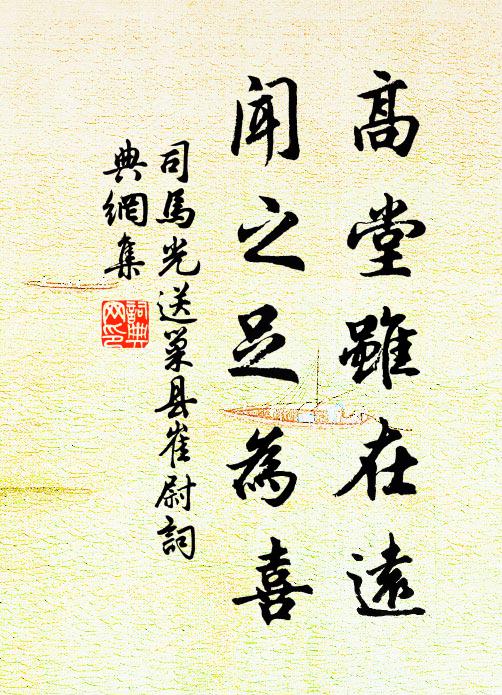 高堂雖在遠
聞之足為喜
司馬光送巢县崔尉詞
典網集
詞典
网印